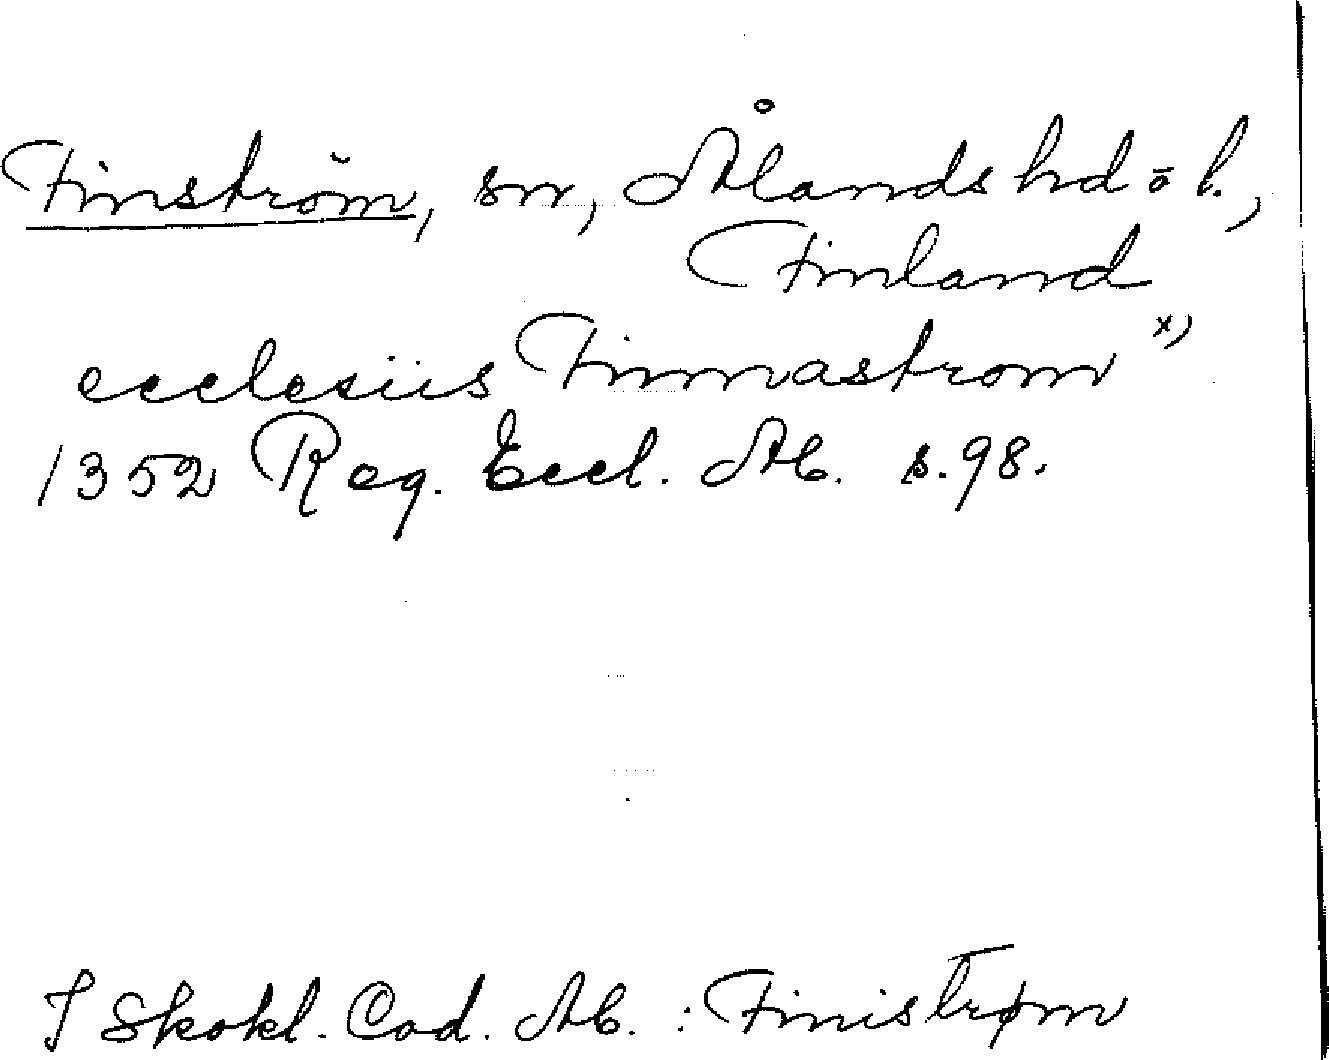 Finström, sn, Ålands hd o l.,
Finland
ecclesiis Finnastrom x)
1352 Reg. Eccl. Ab. s. 98.
I Skokl. Cod. Ab. : Finistrøm